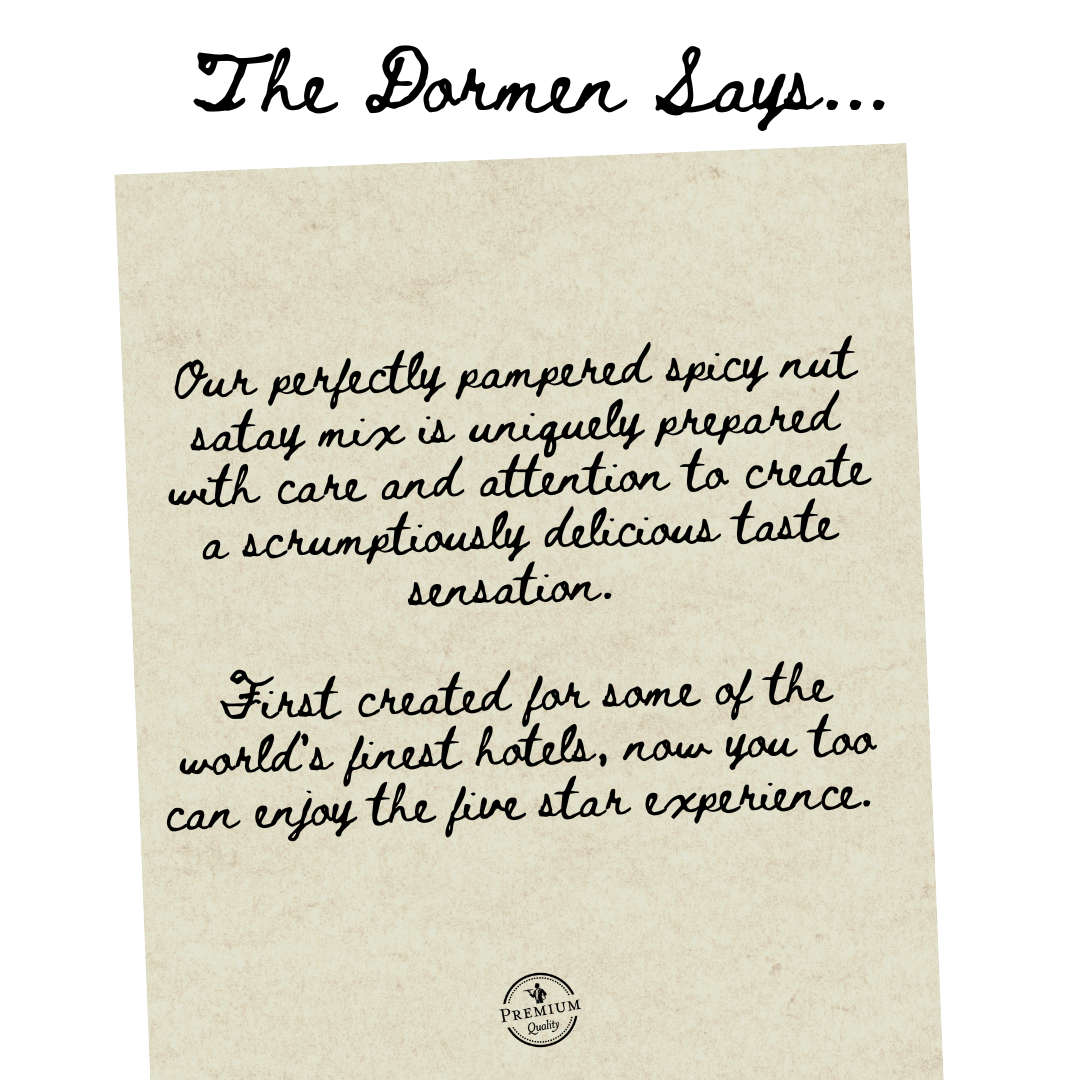 The Dormen Says...
Our perfectly pampered spicy nut
satay mix is uniquely prepared
with care and attention to create
a scrumptiously delicious taste
sensation.
First created for some of the
world's finest hotels, now you too
can enjoy the five star experience.
PREMIUM
Quality